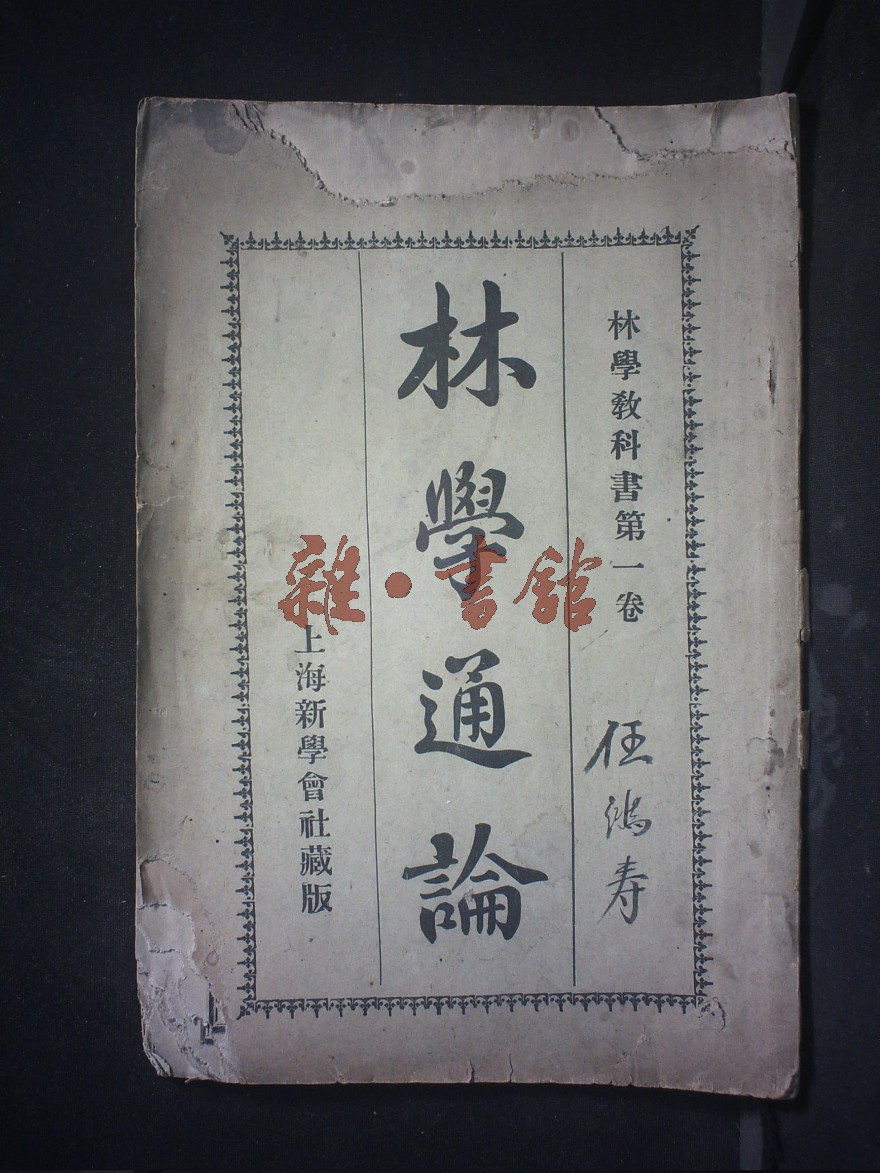 林學教科書第一卷
任鴻寿
林學通論
上海新學會社藏版
雜·書舘